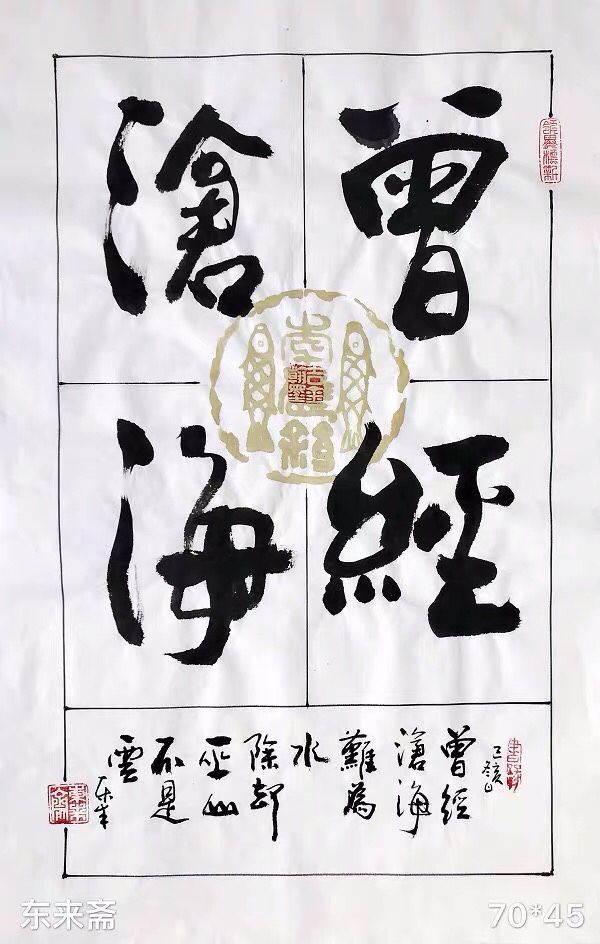 曾經
滄海
己亥
曾經
滄海
難為
水
除却
巫山
不是
雲
东来斋
70*45